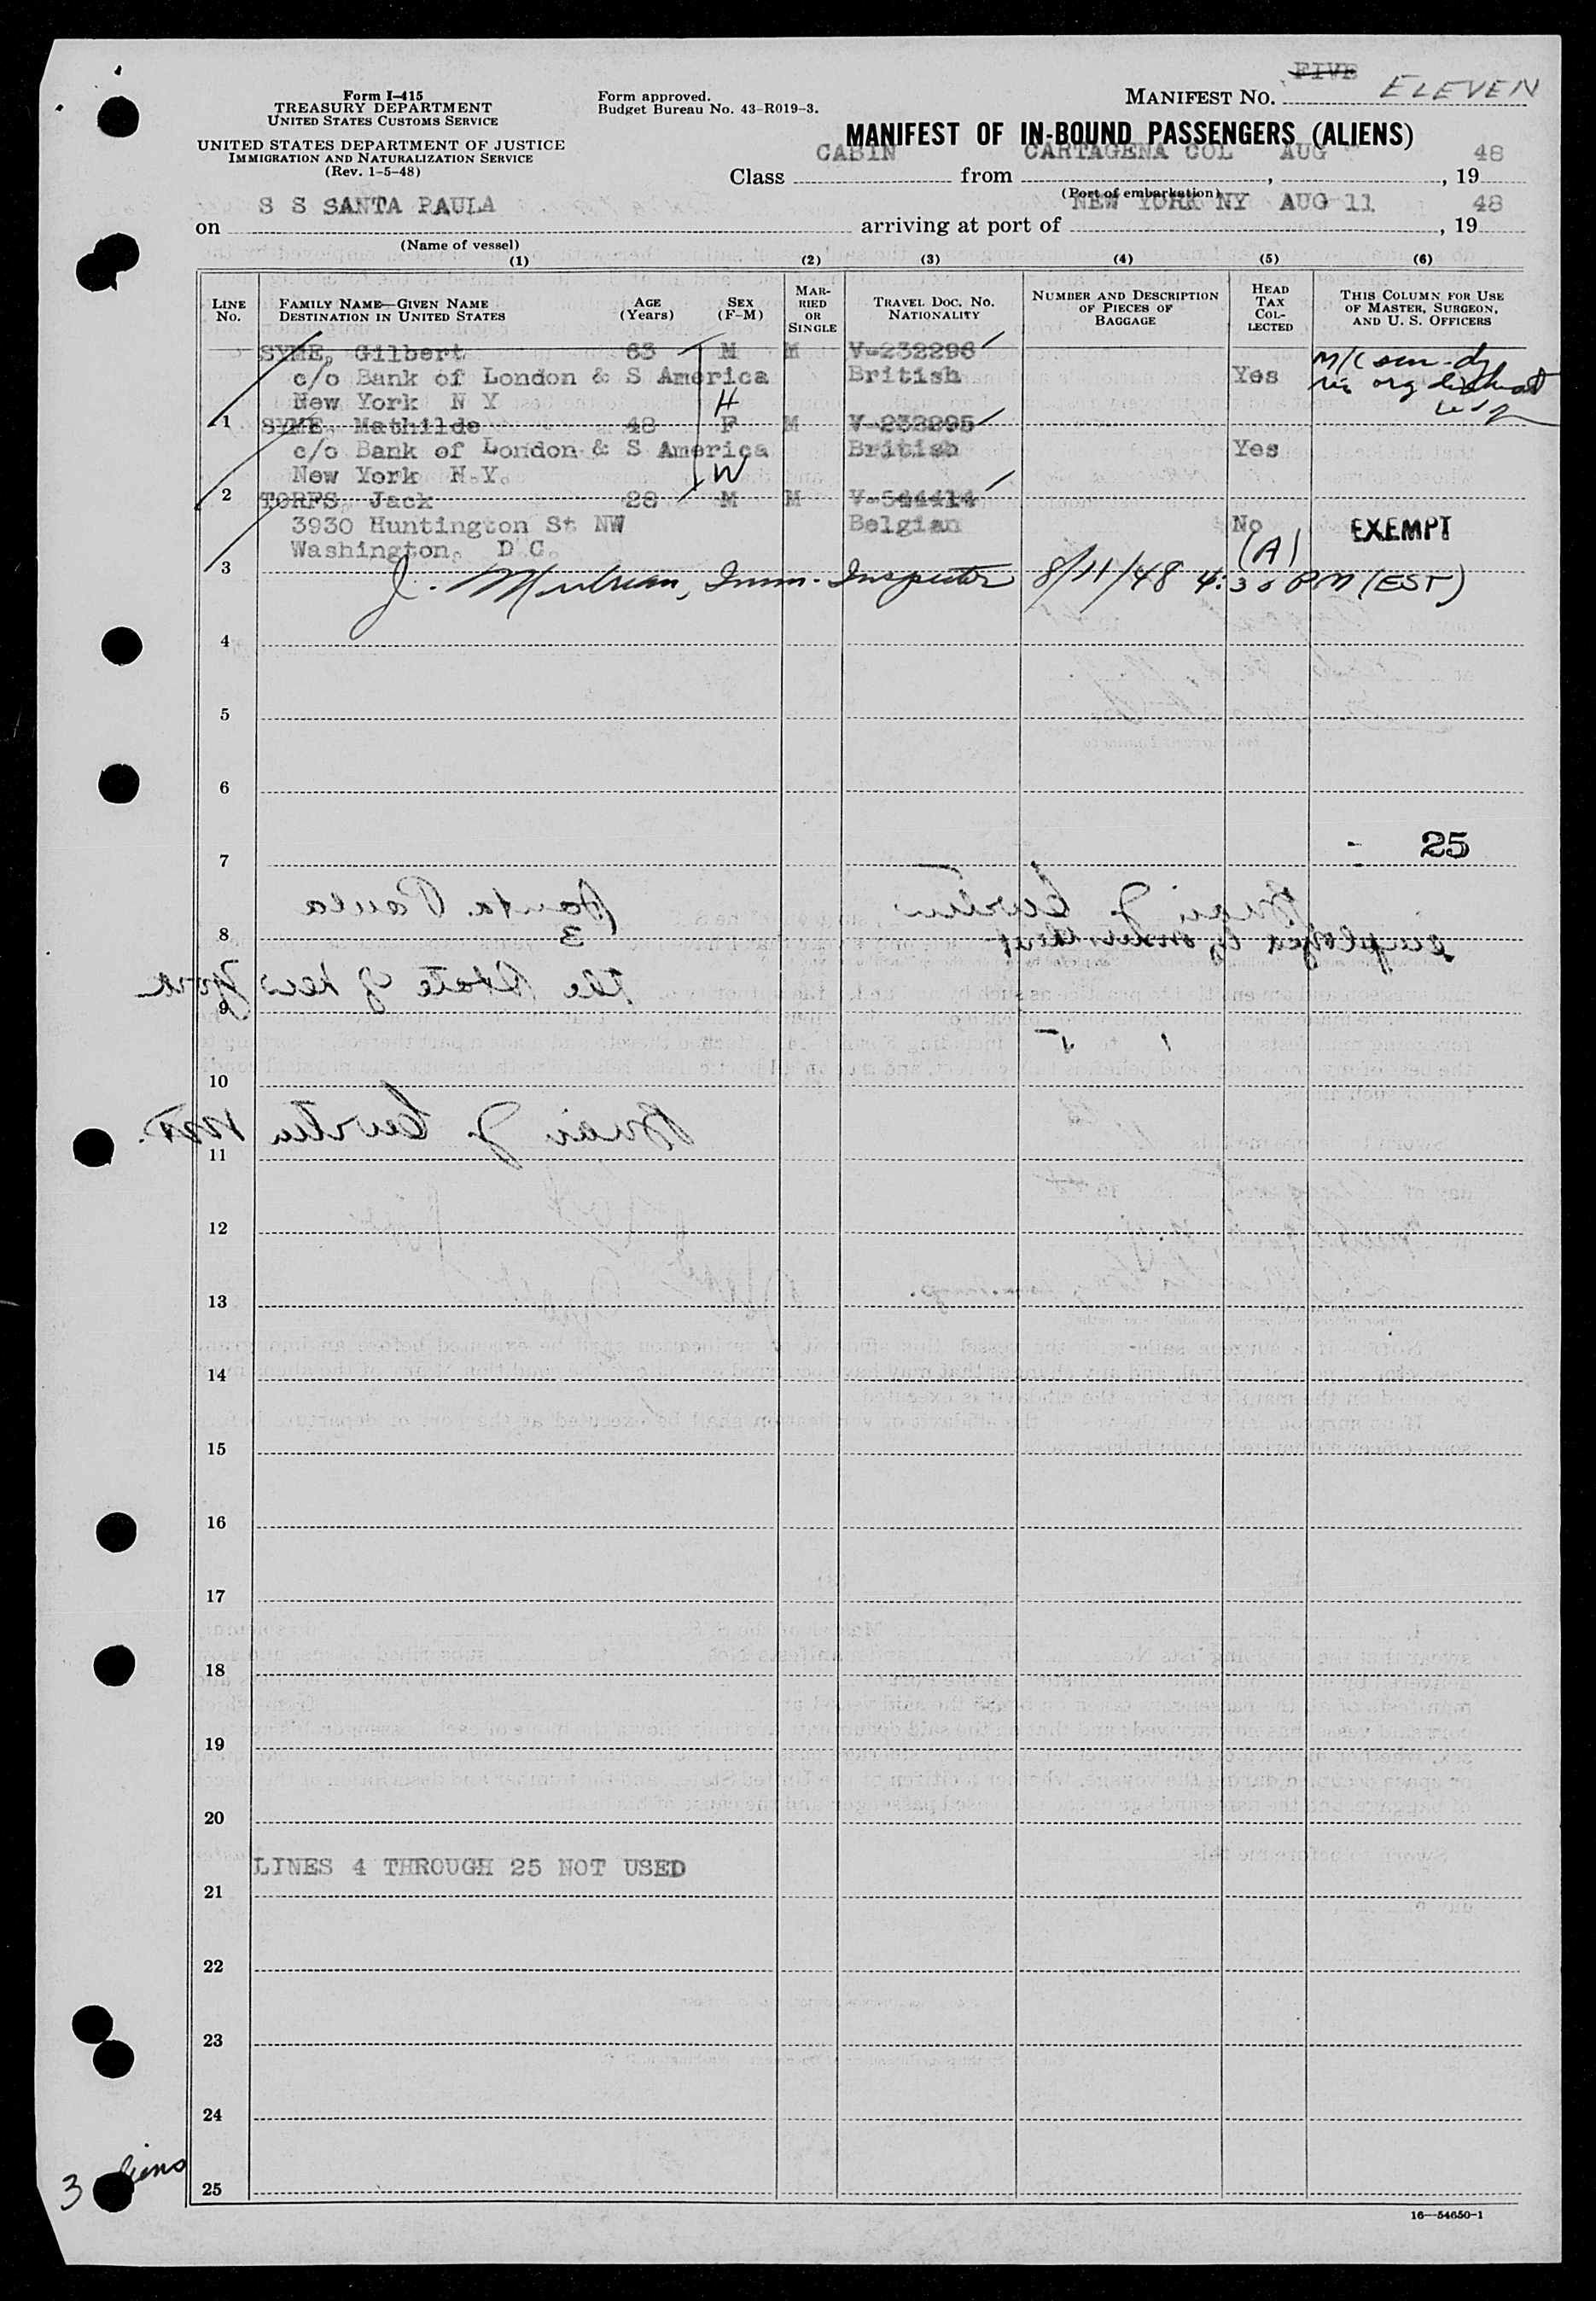 FIVE ELEVEN
Form I-415
TREASURY DEPARTMENT
UNITED STATES CUSTOMS SERVICE
UNITED STATES DEPARTMENT OF JUSTICE
IMMIGRATION AND NATURALIZATION SERVICE
(Rev. 1-5-48)
Form approved.
Budget Bureau No. 43-R019-3.
MANIFEST NO.
MANIFEST OF IN-BOUND PASSENGERS (ALIENS)
Class CABIN from CARTAGENA COL, AUG, 1948
(Port of embarkation)
on S S SANTA PAULA arriving at port of NEW YORK NY AUG 11, 1948
(Name of vessel)
(1) (2) (3) (4) (5) (6)
LINE NO. FAMILY NAME—GIVEN NAME DESTINATION IN UNITED STATES AGE (YEARS) SEX (F-M) MARRIED OR SINGLE TRAVEL DOC. NO. NATIONALITY NUMBER AND DESCRIPTION OF PIECES OF BAGGAGE HEAD TAX COLLECTED THIS COLUMN FOR USE OF MASTER, SURGEON, AND U. S. OFFICERS
SYME, Gilbert 63 M M V-232296
c/o Bank of London & S America British Yes
New York N Y H
1 SYME, Mathilde 48 F M V-232295
c/o Bank of London & S America British Yes
New York N.Y. W
2 TORFS Jack 28 M M V-544414
3930 Huntington St NW Belgian No EXEMPT
Washington, D C. (A)
3 Imm. Inspector 8/11/48 4:30 PM (EST)
4
5
6
7 25
8 Santa Paula Brian J. Curtin
3 employed by
9 the State of New York
10
11 Brian J. Curtin MD.
12
13
14
15
16
17
18
19
20
LINES 4 THROUGH 25 NOT USED
21
22
23
24
25
3 aliens
16—54650-1